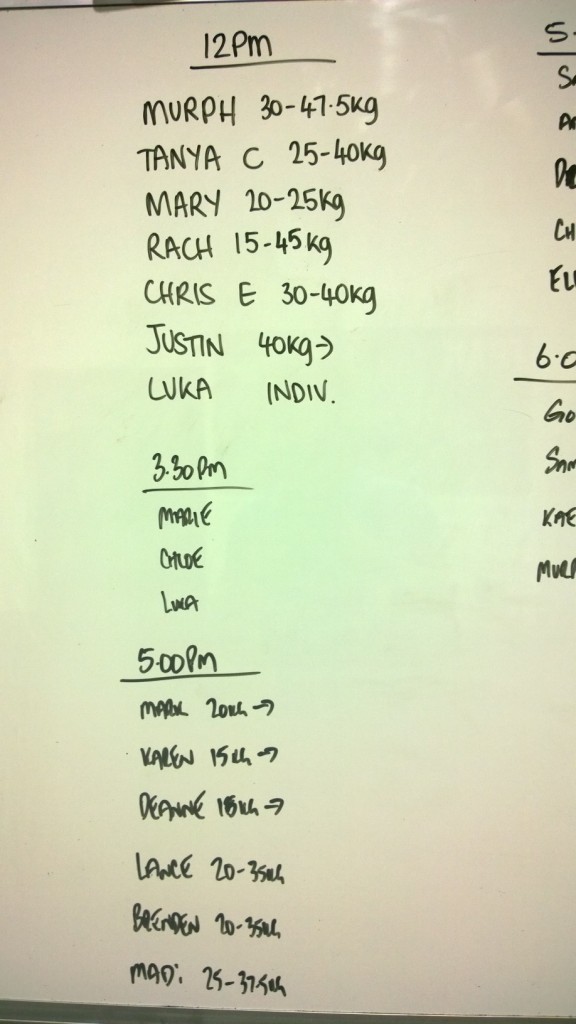 12Pm
MURPH 30-47.5kg
TANYA C 25-40kg
MARY 20-25kg
RACH 15-45kg
CHRIS E 30-40kg
JUSTIN 40kg→
LUKA INDIV.
3.30Pm
MARIE
CHLOE
LUKA
5.00Pm
MARK 20kg→
KAREN 15kg→
DEANNE 15kg→
LANCE 20-35kg
BRENDEN 20-35kg
MADi 25-37.5kg
5-
SA
CH
6.0
Go
SAM
KAE
MURP